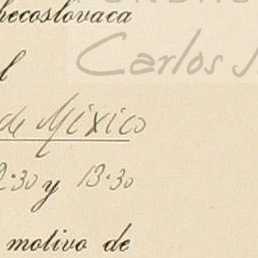 hecoslovaca
Carlos
l
de México
2:30 y 13:30
motivo de